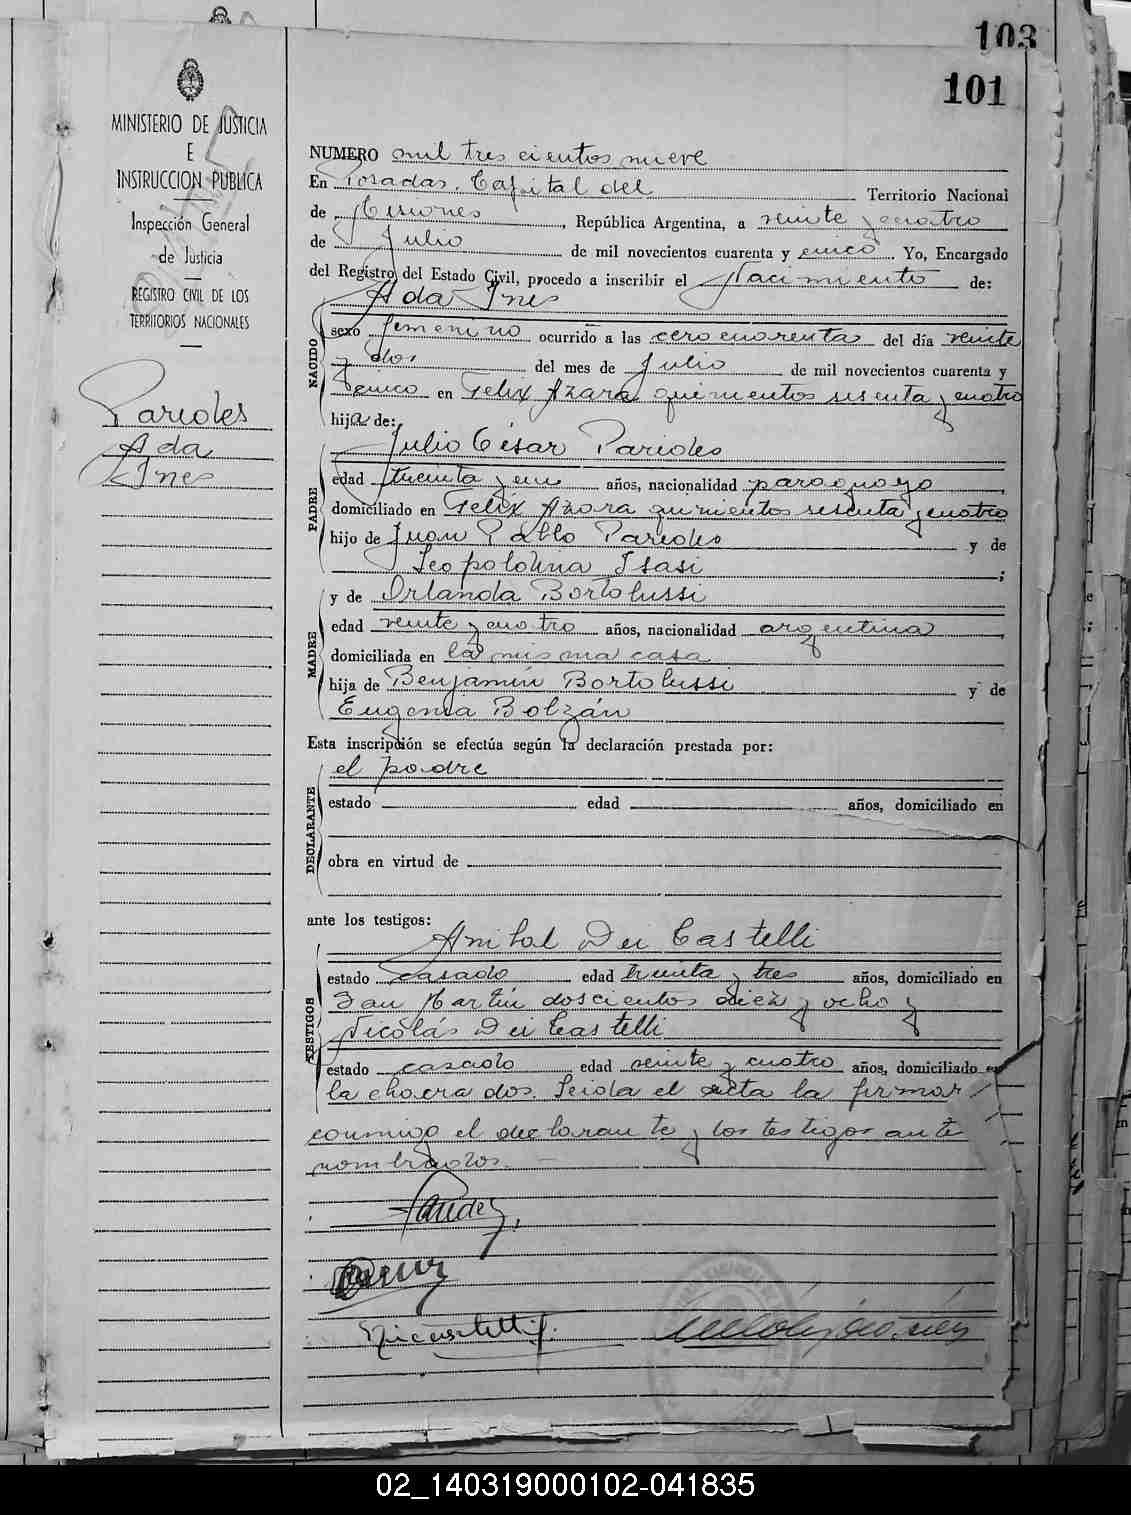 103
101
MINISTERIO DE JUSTICIA
E
INSTRUCCION PUBLICA
Inspección General
de Justicia
REGISTRO CIVIL DE LOS
TERRITORIOS NACIONALES
Paredes
Ada
Ines
NUMERO mil tres cientos nueve
En Posadas, Capital del Territorio Nacional
de Misiones, República Argentina, a veinte y cuatro
de Julio de mil novecientos cuarenta y cinco. Yo, Encargado
del Registro del Estado Civil, procedo a inscribir el Nacimiento de:
Ada Ines
NACIDO
sexo femenino ocurrido a las cero cuarenta del día veinte
y dos del mes de Julio de mil novecientos cuarenta y
cinco en Felix Azara quinientos sesenta y cuatro
hija de:
Julio César Paredes
PADRE
edad treinta y años, nacionalidad paraguayo
domiciliado en Felix Azara quinientos sesenta y cuatro
hijo de Juan Pablo Paredes y de
Leopoldina Isasi ;
y de Orlanda Bortolussi
MADRE
edad veinte y cuatro años, nacionalidad argentina
domiciliada en la misma casa
hija de Benjamín Bortolussi y de
Eugenia Bolzán
Esta inscripción se efectúa según la declaración prestada por:
el padre
DECLARANTE
estado edad años, domiciliado en
obra en virtud de
ante los testigos:
Anibal Dei Castelli
TESTIGOS
estado casado edad treinta y tres años, domiciliado en
San Martín doscientos diez y ocho y
Nicolás Dei Castelli
estado casado edad veinte y cuatro años, domiciliado en
la chacra dos. Leida el acta la firman
conmigo el declarante y los testigos ante
nombrados.
02_140319000102-041835